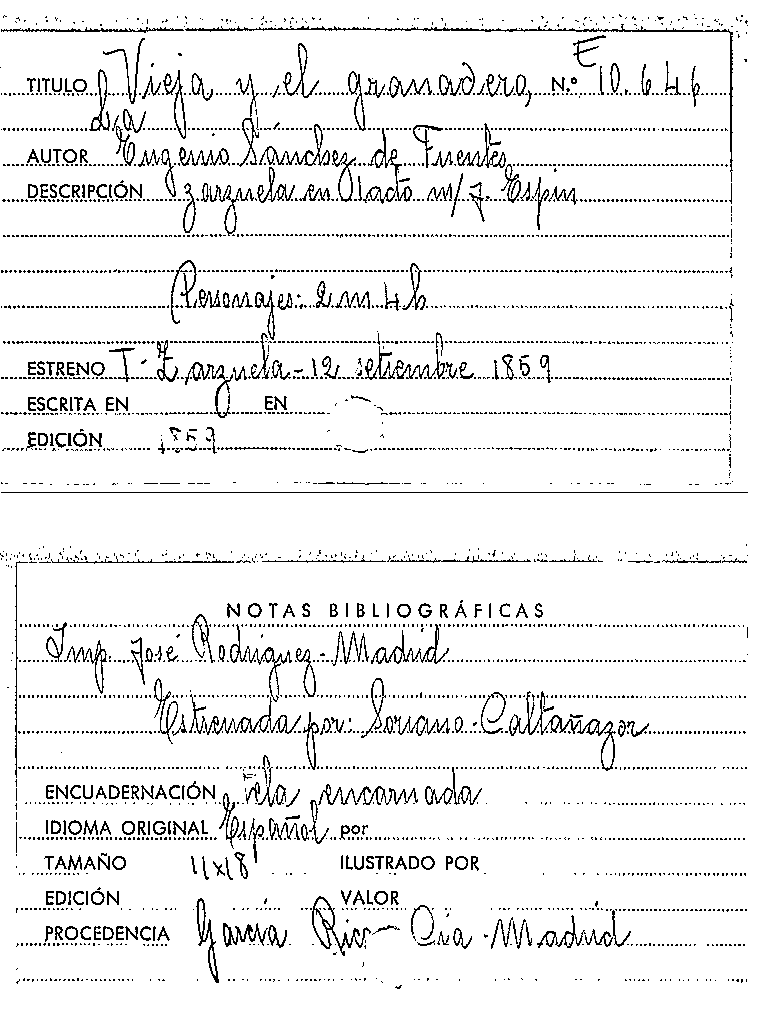 TITULO Vieja y el granadero, N.º E 10.646
La
AUTOR Eugenio Sánchez de Fuentes
DESCRIPCIÓN zarzuela en 1 acto m/ J. Espin
Personajes: 2 m 4 h
ESTRENO T- Zarzuela - 12 setiembre 1859
ESCRITA EN EN
EDICIÓN 1859
NOTAS BIBLIOGRÁFICAS
Imp. José Rodriguez - Madrid
Estrenada por: Soriano - Caltañazor
ENCUADERNACIÓN tela encarnada
IDIOMA ORIGINAL Español por
TAMAÑO 11x18 ILUSTRADO POR
EDICIÓN VALOR
PROCEDENCIA García Rico - Cia - Madrid